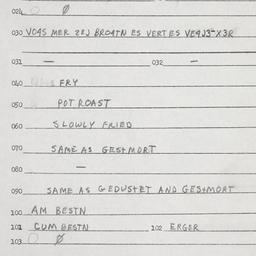 024 Ø
030 VO4S MER 2EJ BRO4TN ES VERTES VE4J3^2X3R
031 — 032 —
040 FRY
050 POT ROAST
060 SLOWLY FRIED
070 SAME AS GES+MORT
080 —
090 SAME AS GEDUS+ET AND GES+MORT
100 AM BESTN
101 CUM BESTN 102 ERGER
103 Ø